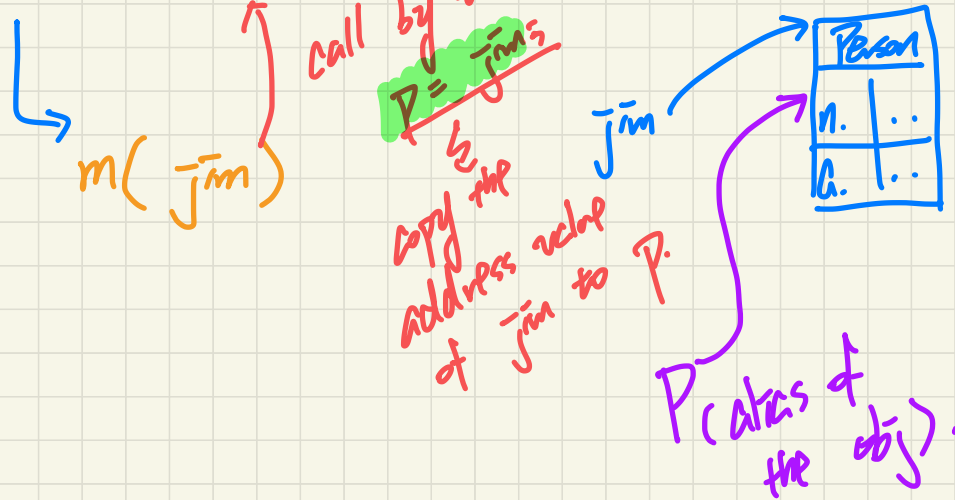 call by
P = jim;
m( jim )
↳ copy the
address value
of jim to P.
jim
Person
n. ..
a. ..
P (alias of
the obj)